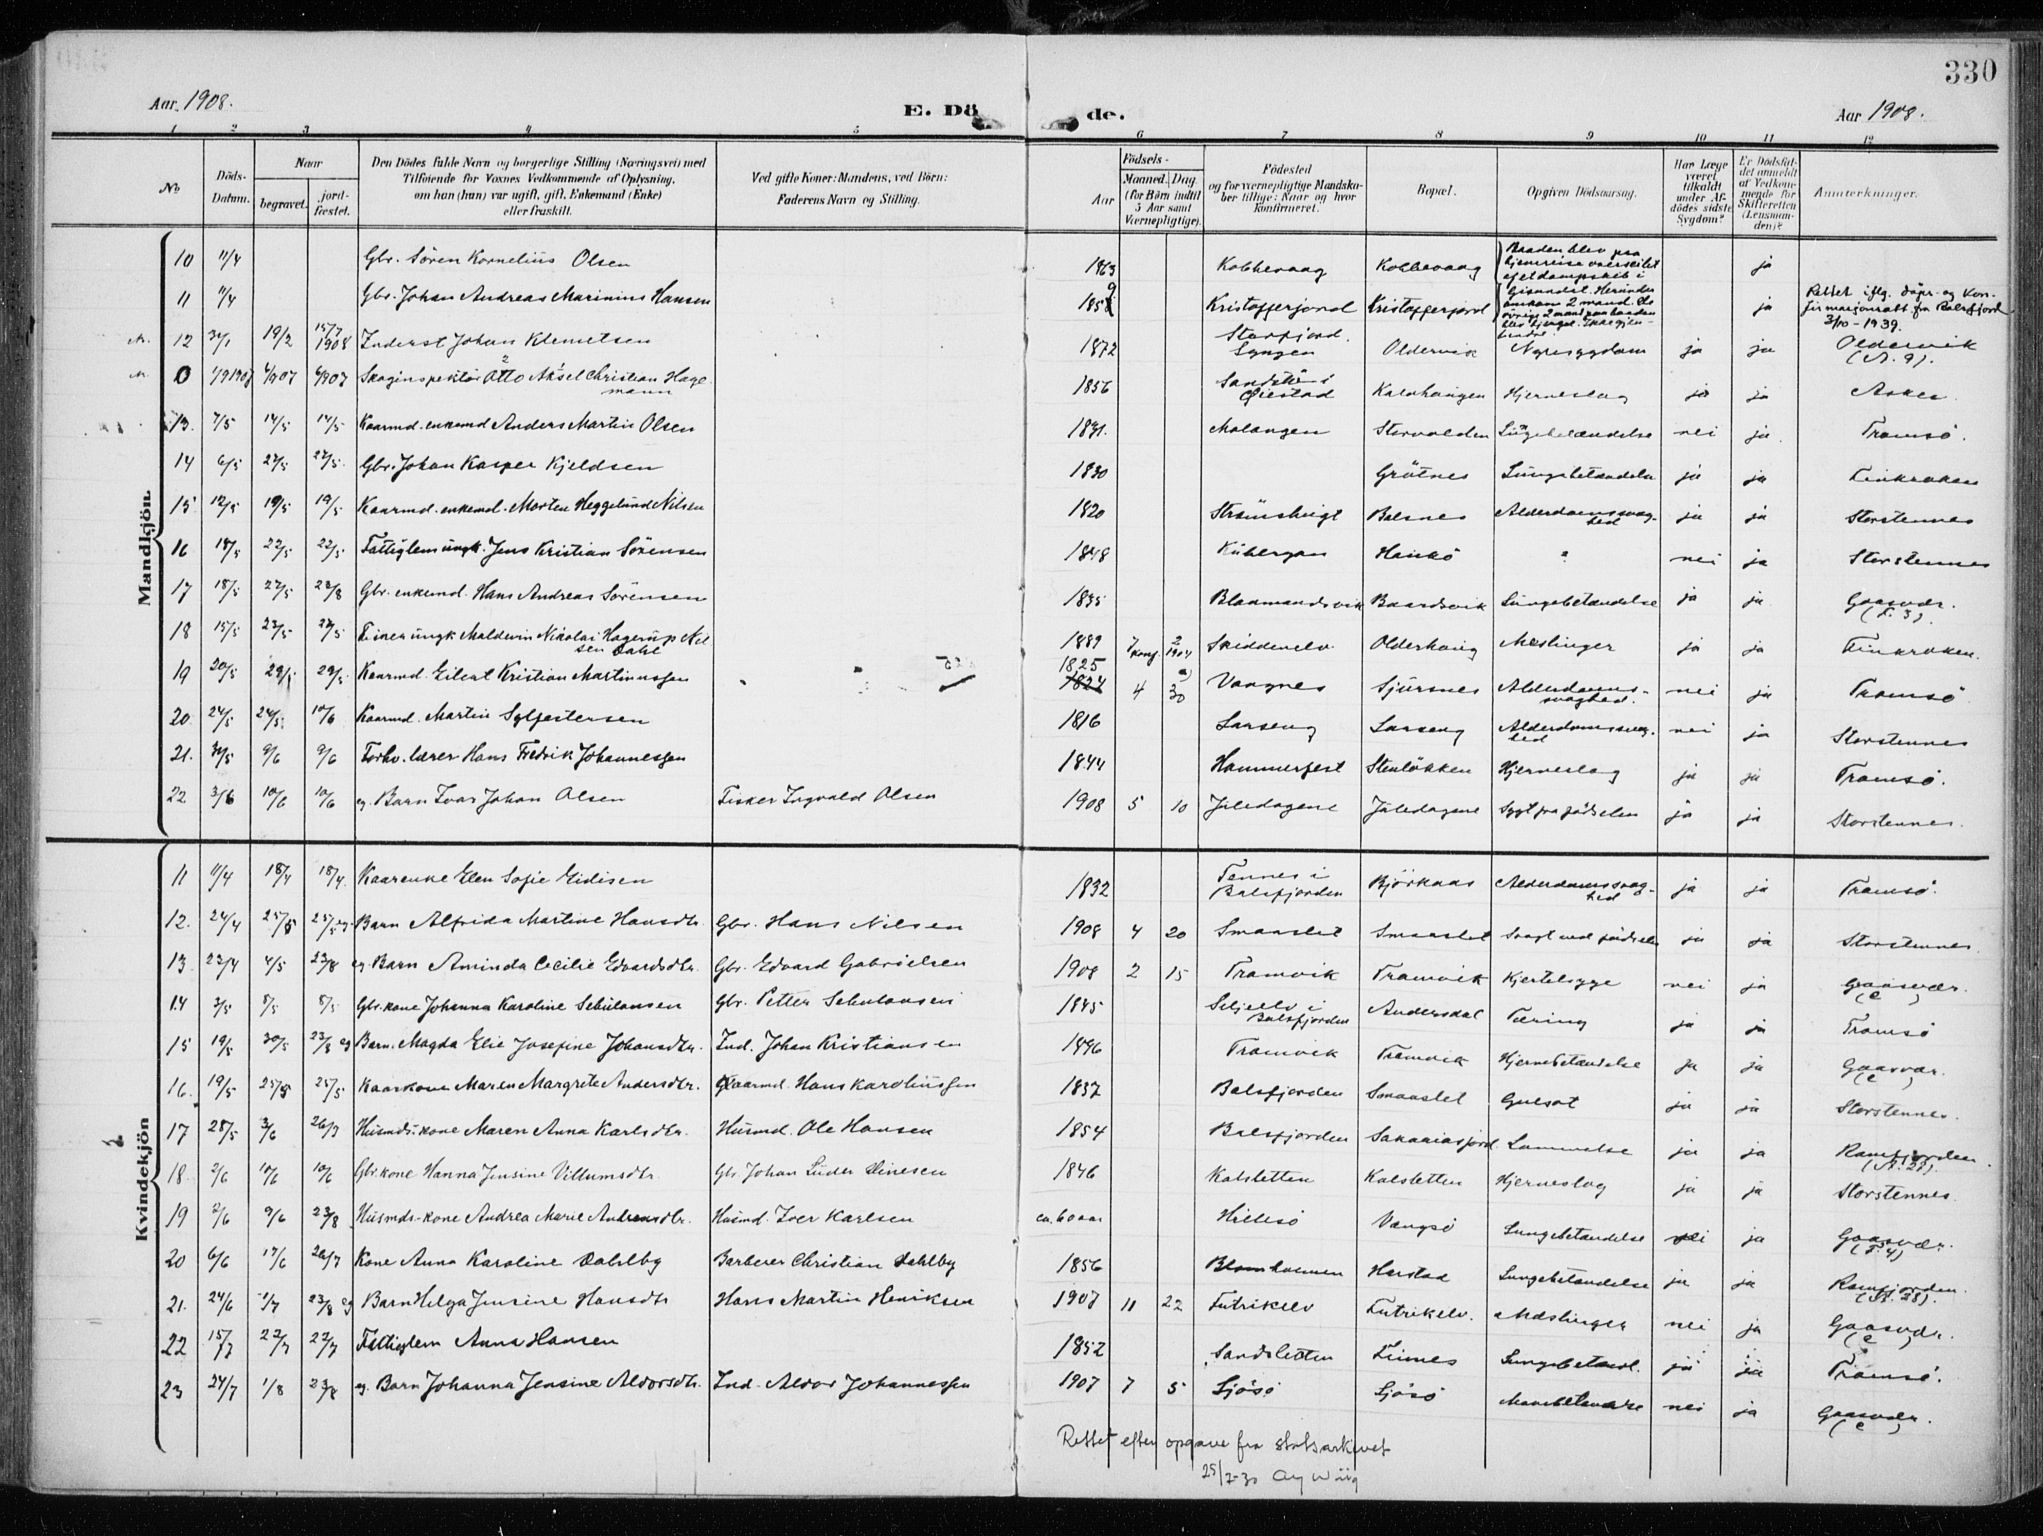 330
Aar 1908.
E. Dö de.
Aar 1908.
1 2 3 4 5 6 7 8 9 10 11 12
No
Döds-Datum.
Naar
begravet.
jord-fæstet.
Den Dödes fulde Navn og borgerlige Stilling (Næringsvei) med
Tilföiende for Voxnes Vedkommende af Oplysning,
om han (hun) var ugift, gift, Enkemand (Enke)
eller fraskilt.
Ved gifte Koner: Mandens, ved Börn:
Faderens Navn og Stilling.
Aar
Födsels-
Maaned. Dag.
(for Börn indtil
5 Aar samt
Værnepligtige).
Födested
og for værnepligtige Mandska-
ber tillige: Naar og hvor
konfirmeret.
Bopæl.
Opgiven Dödsaarsag.
Har Læge
været
tilkaldt
under Af-
dödes sidste
Sygdom?
Er Dödsfal-
det anmeldt
af Vedkom-
mende for
Skifteretten
(Lensman-
den)?
Anmærkninger.
Mandkjön.
10 11/4 Gbr. Sören Kornelius Olsen 1863 Kobbevaag Kobbevaag Baaden blev paa hjemreise overseilet af et dampskib i ja
11 11/4 Gbr. Johan Andreas Marinius Hansen 1859 Kristofferjord Kristofferjord Gisundet. Herunder omkom 2 mand. De övrige 2 mand paa baaden blev bjerget. ja Rettet iflg. daps- og Kon-firmasjonsatt. fra Balsfjord 3/10-1939.
12 31/1 19/2 15/7 1908 Inderst Johan Klemetsen 1872 Storfjord, Lyngen Oldervik Nyresygdom ja ja Oldervik (N. 9).
0 1/9 1907 6/9 07 6/9 07 Skoginspektör Otto Aksel Christian Hagemann 1856 Sandstö i Öiestad Kalvhaugen Hjerneslag ja ja Asker
13. 7/5 14/5 14/5 Kaarmd. enkemd Anders Martin Olsen 1831. Malangen Storvolden Lungebetændelse nei ja. Tromsö.
14 6/5 27/5 27/5 Gbr. Johan Kasper Kjeldsen 1830 Grötnes Lungebetændelse ja ja Finkroken
15 12/5 19/5 19/5 Kaarmd. enkemd. Morten Heggelund Nilsen 1820 Strömsheigt Balsnes Alderdomssvaghed ja ja Storstennes
16 18/5 22/5 22/5 Fattiglem ungk. Jens Kristian Sörensen 1848 Kibergan Haakö " nei ja Storstennes
17 18/5 27/5 23/8 Gbr. enkemd. Hans Andreas Sörensen 1835 Blaamandsvik Baardsvik Lungebetændelse ja ja Gaasvær. (L. 3)
18 15/5 27/5 27/5 Fisker ungk Maldwin Nikolai Hagerup Nilsen Dahl 1889 7 konf. 2 1904 Skiddenelv Olderhaug Meslinger ja ja Finkroken.
19 20/5 29/5 29/5 Kaarmd. Eilert Kristian Martinussen 1825 1824 4 30 Vangnes Sjursnes Alderdomssvaghed. nei ja Tromsö
20. 24/5 24/5 10/6 Kaarmd. Martin Sylfestersen 1816 Larseng Larseng Alderdomssvaghed nei ja Storstennes
21. 31/5 9/6 9/6 Forhv. lærer Hans Fredrik Johannessen 1844 Hammerfest Stenlökken Hjerneslag ja ja Tromsö.
22 3/6 10/6 10/6 eg. Barn Ivar Johan Olsen Fisker Ingvald Olsen 1908 5 10 Jöledagene Jöledagene Sygt fra födselen ja ja Storstennes.
Kvindekjön
11 11/4 18/4 18/4. Kaarenke Elen Sofie Eidisen 1832 Tennes i Balsfjorden Björkaas Alderdomssvaghed ja ja Tromsö.
12. 24/4 25/5 25/5 eg. Barn Alfrida Martine Hansdtr. Gbr. Hans Nilsen 1908 4 20 Smaaslet Smaaslet Svagt ved födselen ja ja Storstennes.
13 23/4 4/5 23/8 eg. Barn Aminda Cecilie Edvardsdtr. Gbr. Edvard Gabrielsen 1908 2 15 Tromvik Tromvik Kjertelsyge nei ja Gaasvær. (C )
14 3/5 8/5 8/5 Gbr. kone Johanna Karoline Schulansen Gbr. Petter Schulansen 1845 Seljelv i Balsfjorden Andersdal Tæring ja ja Tromsö
15 19/5 30/5 23/8 eg Barn. Magda Elie Josefine Johansdtr. Ind. Johan Kristiansen 1896 Tromvik Tromvik Hjernebetændelse ja ja Gaasvær. (C )
16. 19/5 25/5 25/5 Kaarkone Maren Margrete Andersdtr. Kaarmd. Hans Karoliussen 1837 Balsfjorden Smaaslet Gulsot ja ja Storstennes.
17 28/5 3/6 26/7 Husmds. kone Maren Anna Karlsdtr. Husmd. Ole Hansen 1854 Balsfjorden Sakariasjord Lammelse ja ja Ramfjorden. (N. 27).
18. 2/6 10/6 10/6 Gbr. kone Hanna Jensine Villumsdtr. Gbr. Johan Lüder Dinesen 1846 Kalsletten Kalsletten Hjerneslag ja ja Storstennes.
19 2/6 9/6 23/8 Husmds-kone Andrea Marie Andreasdtr. Husmd. Iver Karlsen ca. 60 aar Hillesö Vengsö Lungebetændelse nei ja Gaasvær. (L. 4)
20 6/6 17/6 26/7 Kone Anna Karoline Dahlby Barberer Christian Dahlby 1856 Harstad Lungebetændelse ja ja Ramfjorden. (N. 28).
21. 24/6 1/7 23/8 eg Barn Helga Jensine Hansdtr Hans Martin Henriksen 1907 11 22 Futrikelv Futrikelv. Mæslinger nei ja Gaasvær. (C )
22 15/7 22/7 22/7 Fattiglem Anna Hansen 1852 Sandsletten Finnes Lungebetændl. ja ja Tromsö.
23 24/7 1/8 23/8 eg. Barn Johanna Jensine Aldorsdtr. Ind. Aldor Johannessen 1907 7 5 Sjösö Sjösö nei ja Gaasvær. (C )
Rettet efter opgave fra statsarkivet
25/2-30